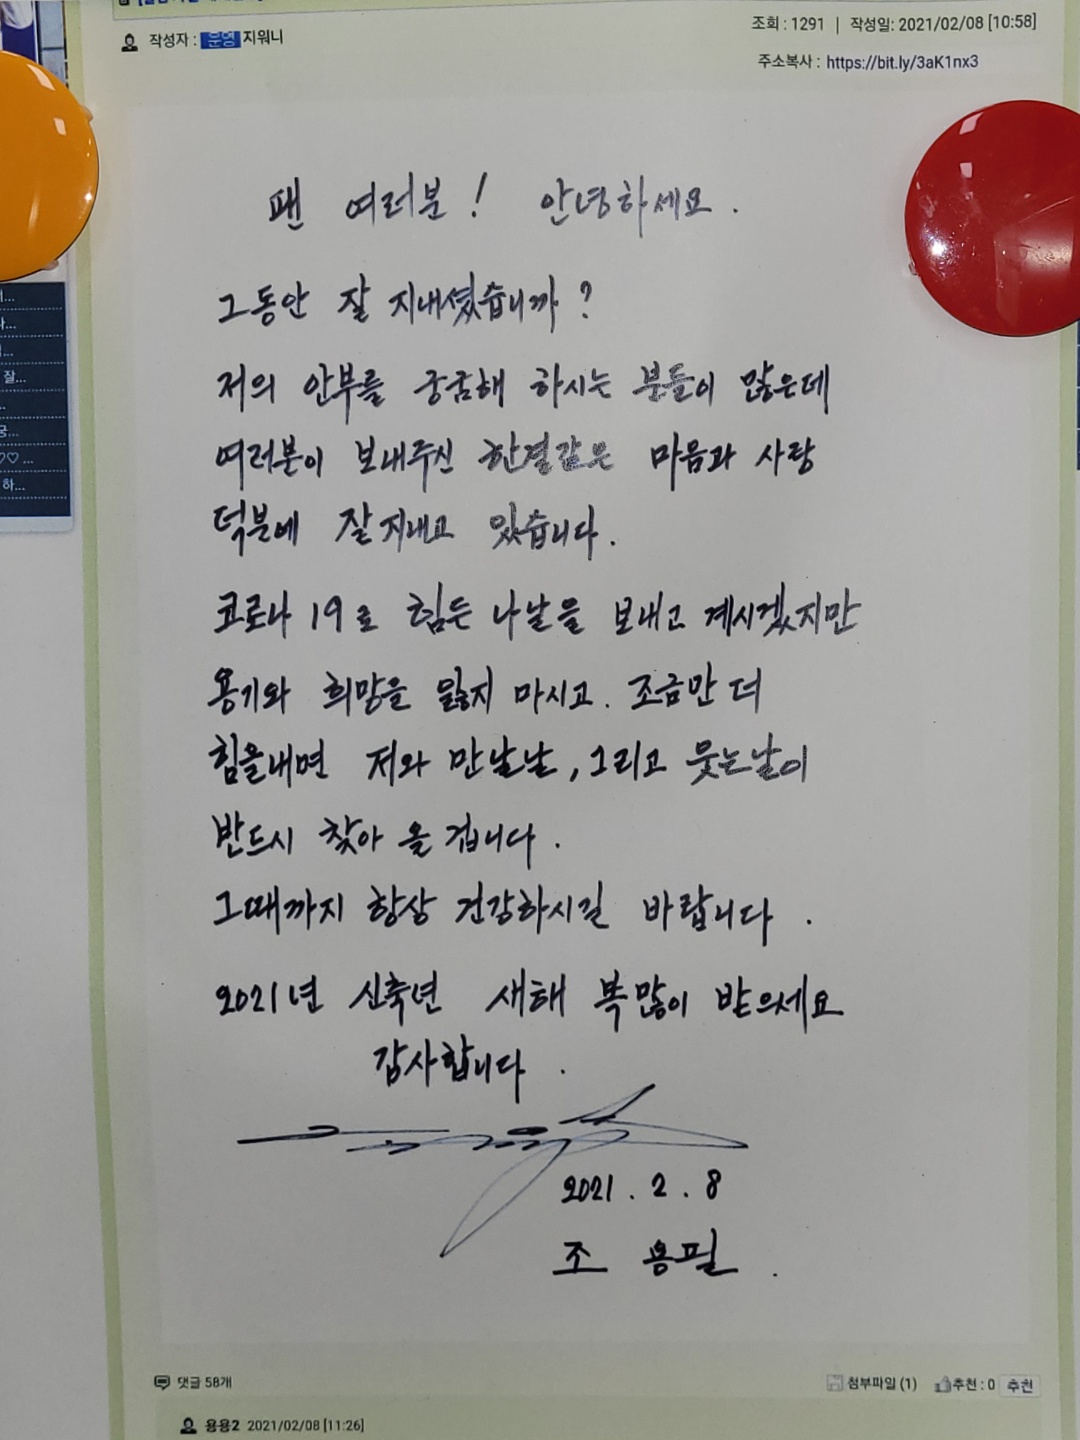 작성자 : 운영 지워니
조회 : 1291 | 작성일: 2021/02/08 [10:58]
주소복사 : https://bit.ly/3aK1nx3
팬 여러분! 안녕하세요.
그동안 잘 지내셨습니까?
저의 안부를 궁굼해 하시는 분들이 많은데
여러분이 보내주신 한결같은 마음과 사랑
덕분에 잘지내고 있습니다.
코로나 19로 힘든 나날을 보내고 계시겠지만
용기와 희망을 잃지 마시고. 조금만 더
힘을내면 저와 만날날, 그리고 웃는날이
반드시 찾아 올 겁니다.
그때까지 항상 건강하시길 바랍니다.
2021년 신축년 새해 복많이 받으세요
감사합니다.
2021. 2. 8
조 용필.
댓글 58개
첨부파일 (1) 추천 : 0 추천
용용2 2021/02/08 [11:26]
잘...
하...